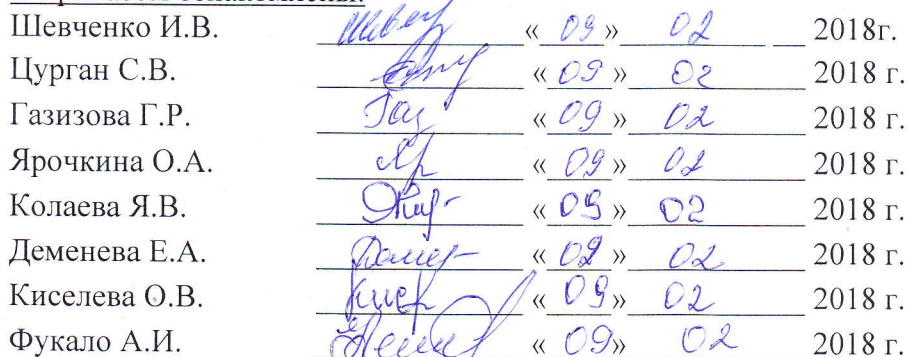 Шевченко И.В. « 09 » 02 2018г.
Цурган С.В. « 09 » 02 2018 г.
Газизова Г.Р. Газ « 09 » 02 2018 г.
Ярочкина О.А. Яр « 09 » 02 2018 г.
Колаева Я.В. « 09 » 02 2018 г.
Деменева Е.А. « 09 » 02 2018 г.
Киселева О.В. « 09 » 02 2018 г.
Фукало А.И. « 09 » 02 2018 г.